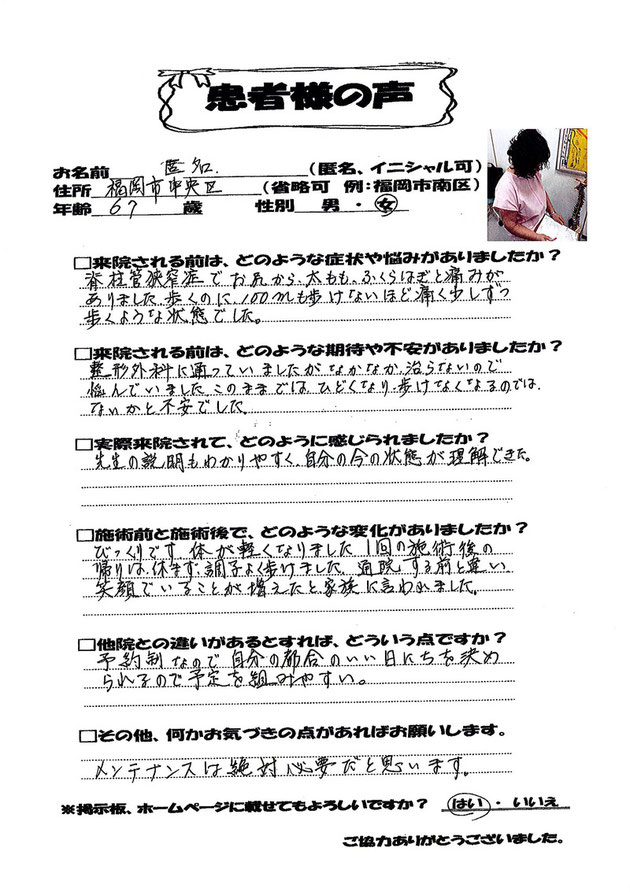 患者様の声
お名前 匿名. (匿名、イニシャル可)
住所 福岡市中央区 (省略可 例:福岡市南区)
年齢 67 歳 性別 男・女
□来院される前は、どのような症状や悩みがありましたか?
脊柱管狭窄症でお尻から、太もも、ふくらはぎと痛みが
ありました。歩くのに、100mも歩けないほど痛く少しずつ
歩くような状態でした。
□来院される前は、どのような期待や不安がありましたか?
整形外科に通っていましたがなかなか、治らないので
悩んでいました。このままでは、ひどくなり、歩けなくなるのでは、
ないかと不安でした。
□実際来院されて、どのように感じられましたか?
先生の説明もわかりやすく、自分の今の状態が理解できた。
□施術前と施術後で、どのような変化がありましたか?
びっくりです。体が軽くなりました。1回の施術後の
帰りは、休まず、調子よく歩けました。通院する前と違い、
笑顔でいることが増えたと家族に言われました。
□他院との違いがあるとすれば、どういう点ですか?
予約制なので自分の都合のいい日にちを決め
られるので予定を組みやすい。
□その他、何かお気づきの点があればお願いします。
メンテナンスは絶対必要だと思います。
※掲示板、ホームページに載せてもよろしいですか? はい・いいえ
ご協力ありがとうございました。